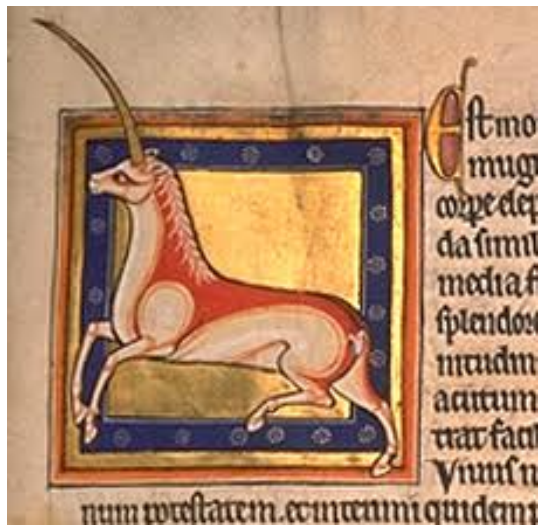 Est mo
mugi
corpe elep
da simil
media f
splendore
nitudin
acutum
trat facil
Vivus n
num potestatem. et interimi quidem p